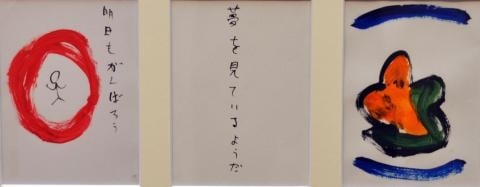 明日もがんばろう
夢を見ているようだ